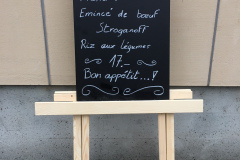 Emincé de bœuf
Stroganoff
Riz aux légumes
~ 17.- ~
Bon appétit...!